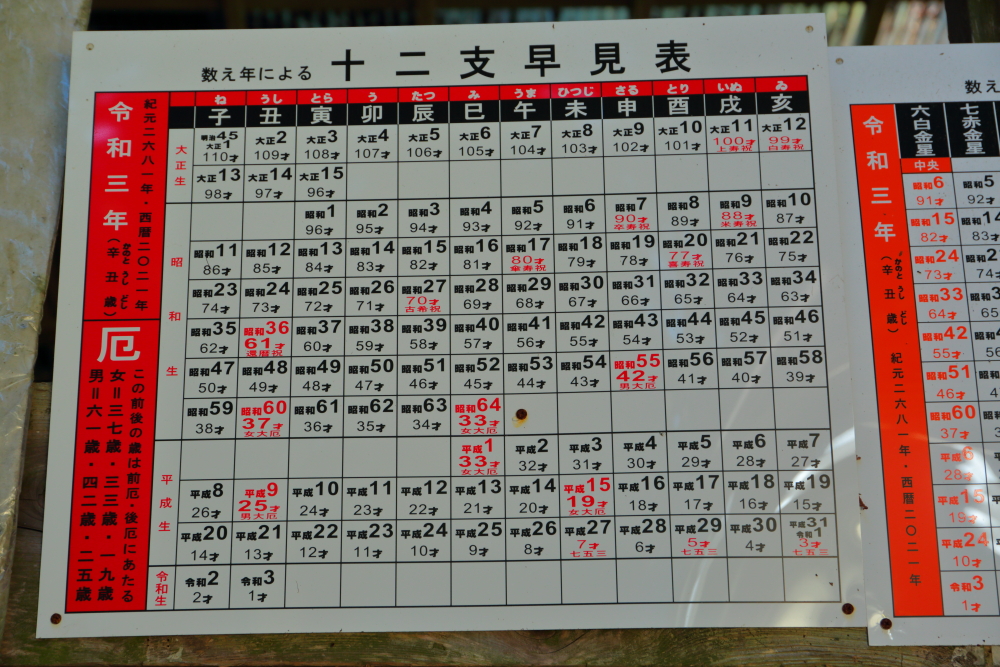 数え年による 十二支早見表
令和三年（辛丑歳） かのとうし どし
紀元二六八一年・西暦二〇二一年
厄
女＝三七歳・三三歳・一九歳
男＝六一歳・四二歳・二五歳
この前後の歳は前厄・後厄にあたる
ね うし とら う たつ み うま ひつじ さる とり いぬ ゐ
子 丑 寅 卯 辰 巳 午 未 申 酉 戌 亥
大正生
明治45 大正1 大正2 大正3 大正4 大正5 大正6 大正7 大正8 大正9 大正10 大正11 大正12
110才 109才 108才 107才 106才 105才 104才 103才 102才 101才 100才 99才
上寿祝 白寿祝
大正13 大正14 大正15
98才 97才 96才
昭和生
昭和1 昭和2 昭和3 昭和4 昭和5 昭和6 昭和7 昭和8 昭和9 昭和10
96才 95才 94才 93才 92才 91才 90才 89才 88才 87才
卒寿祝 米寿祝
昭和11 昭和12 昭和13 昭和14 昭和15 昭和16 昭和17 昭和18 昭和19 昭和20 昭和21 昭和22
86才 85才 84才 83才 82才 81才 80才 79才 78才 77才 76才 75才
傘寿祝 喜寿祝
昭和23 昭和24 昭和25 昭和26 昭和27 昭和28 昭和29 昭和30 昭和31 昭和32 昭和33 昭和34
74才 73才 72才 71才 70才 69才 68才 67才 66才 65才 64才 63才
古希祝
昭和35 昭和36 昭和37 昭和38 昭和39 昭和40 昭和41 昭和42 昭和43 昭和44 昭和45 昭和46
62才 61才 60才 59才 58才 57才 56才 55才 54才 53才 52才 51才
還暦祝
昭和47 昭和48 昭和49 昭和50 昭和51 昭和52 昭和53 昭和54 昭和55 昭和56 昭和57 昭和58
50才 49才 48才 47才 46才 45才 44才 43才 42才 41才 40才 39才
男大厄
昭和59 昭和60 昭和61 昭和62 昭和63 昭和64
38才 37才 36才 35才 34才 33才
女大厄 女大厄
平成生
平成1 平成2 平成3 平成4 平成5 平成6 平成7
33才 32才 31才 30才 29才 28才 27才
女大厄
平成8 平成9 平成10 平成11 平成12 平成13 平成14 平成15 平成16 平成17 平成18 平成19
26才 25才 24才 23才 22才 21才 20才 19才 18才 17才 16才 15才
男大厄 女大厄
平成20 平成21 平成22 平成23 平成24 平成25 平成26 平成27 平成28 平成29 平成30 平成31 令和1
14才 13才 12才 11才 10才 9才 8才 7才 6才 5才 4才 3才
七五三 七五三 七五三
令和生
令和2 令和3
2才 1才
数え
令和三年（辛丑歳） かのとうし どし
紀元二六八一年・西暦二〇二一年
六白金星 七赤金星
中央
昭和6 昭和5
91才 92才
昭和15 昭和14
82才 83才
昭和24
73才 74
昭和33
64才 65
昭和42
55才 56
昭和51
46才
昭和60
37才
平成6
28才
平成15
19才
平成24
10才
令和3
1才